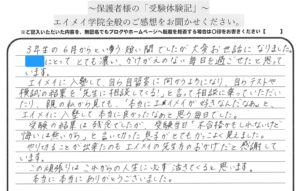 ～保護者様の「受験体験記」～
エイメイ学院全般のご感想をお聞かせください。
※ご記入いただいた内容を、無記名でもブログやホームページへ転載を拒否する場合は○印をおきください
3年生の6月からという短い間でしたが大変お世話になりました。
にとって とても濃い、かけがえのない毎日を過ごせたと思って
います。
エイメイに入塾して、自ら自習室に向かうようになり、自らテストや
模試の結果を「先生に相談してくる」と言って相談に乗っていただい
たり、親の私から見ても、「本当にエイメイが好きなんだなぁ」と、
エイメイに入塾して本当に良かったなぁと思います。
受験の結果は残念でしたが、受験当日「不合格かもしれないけど
悔いは無いから」と言い切った息子がとてもかっこよく見えました。
やりきることが出来たのもエイメイの先生方のおかげだと感謝して
います。
この頑張りはこれからの人生に必ず活きてくると思います。
本当に本当にありがとうございました。